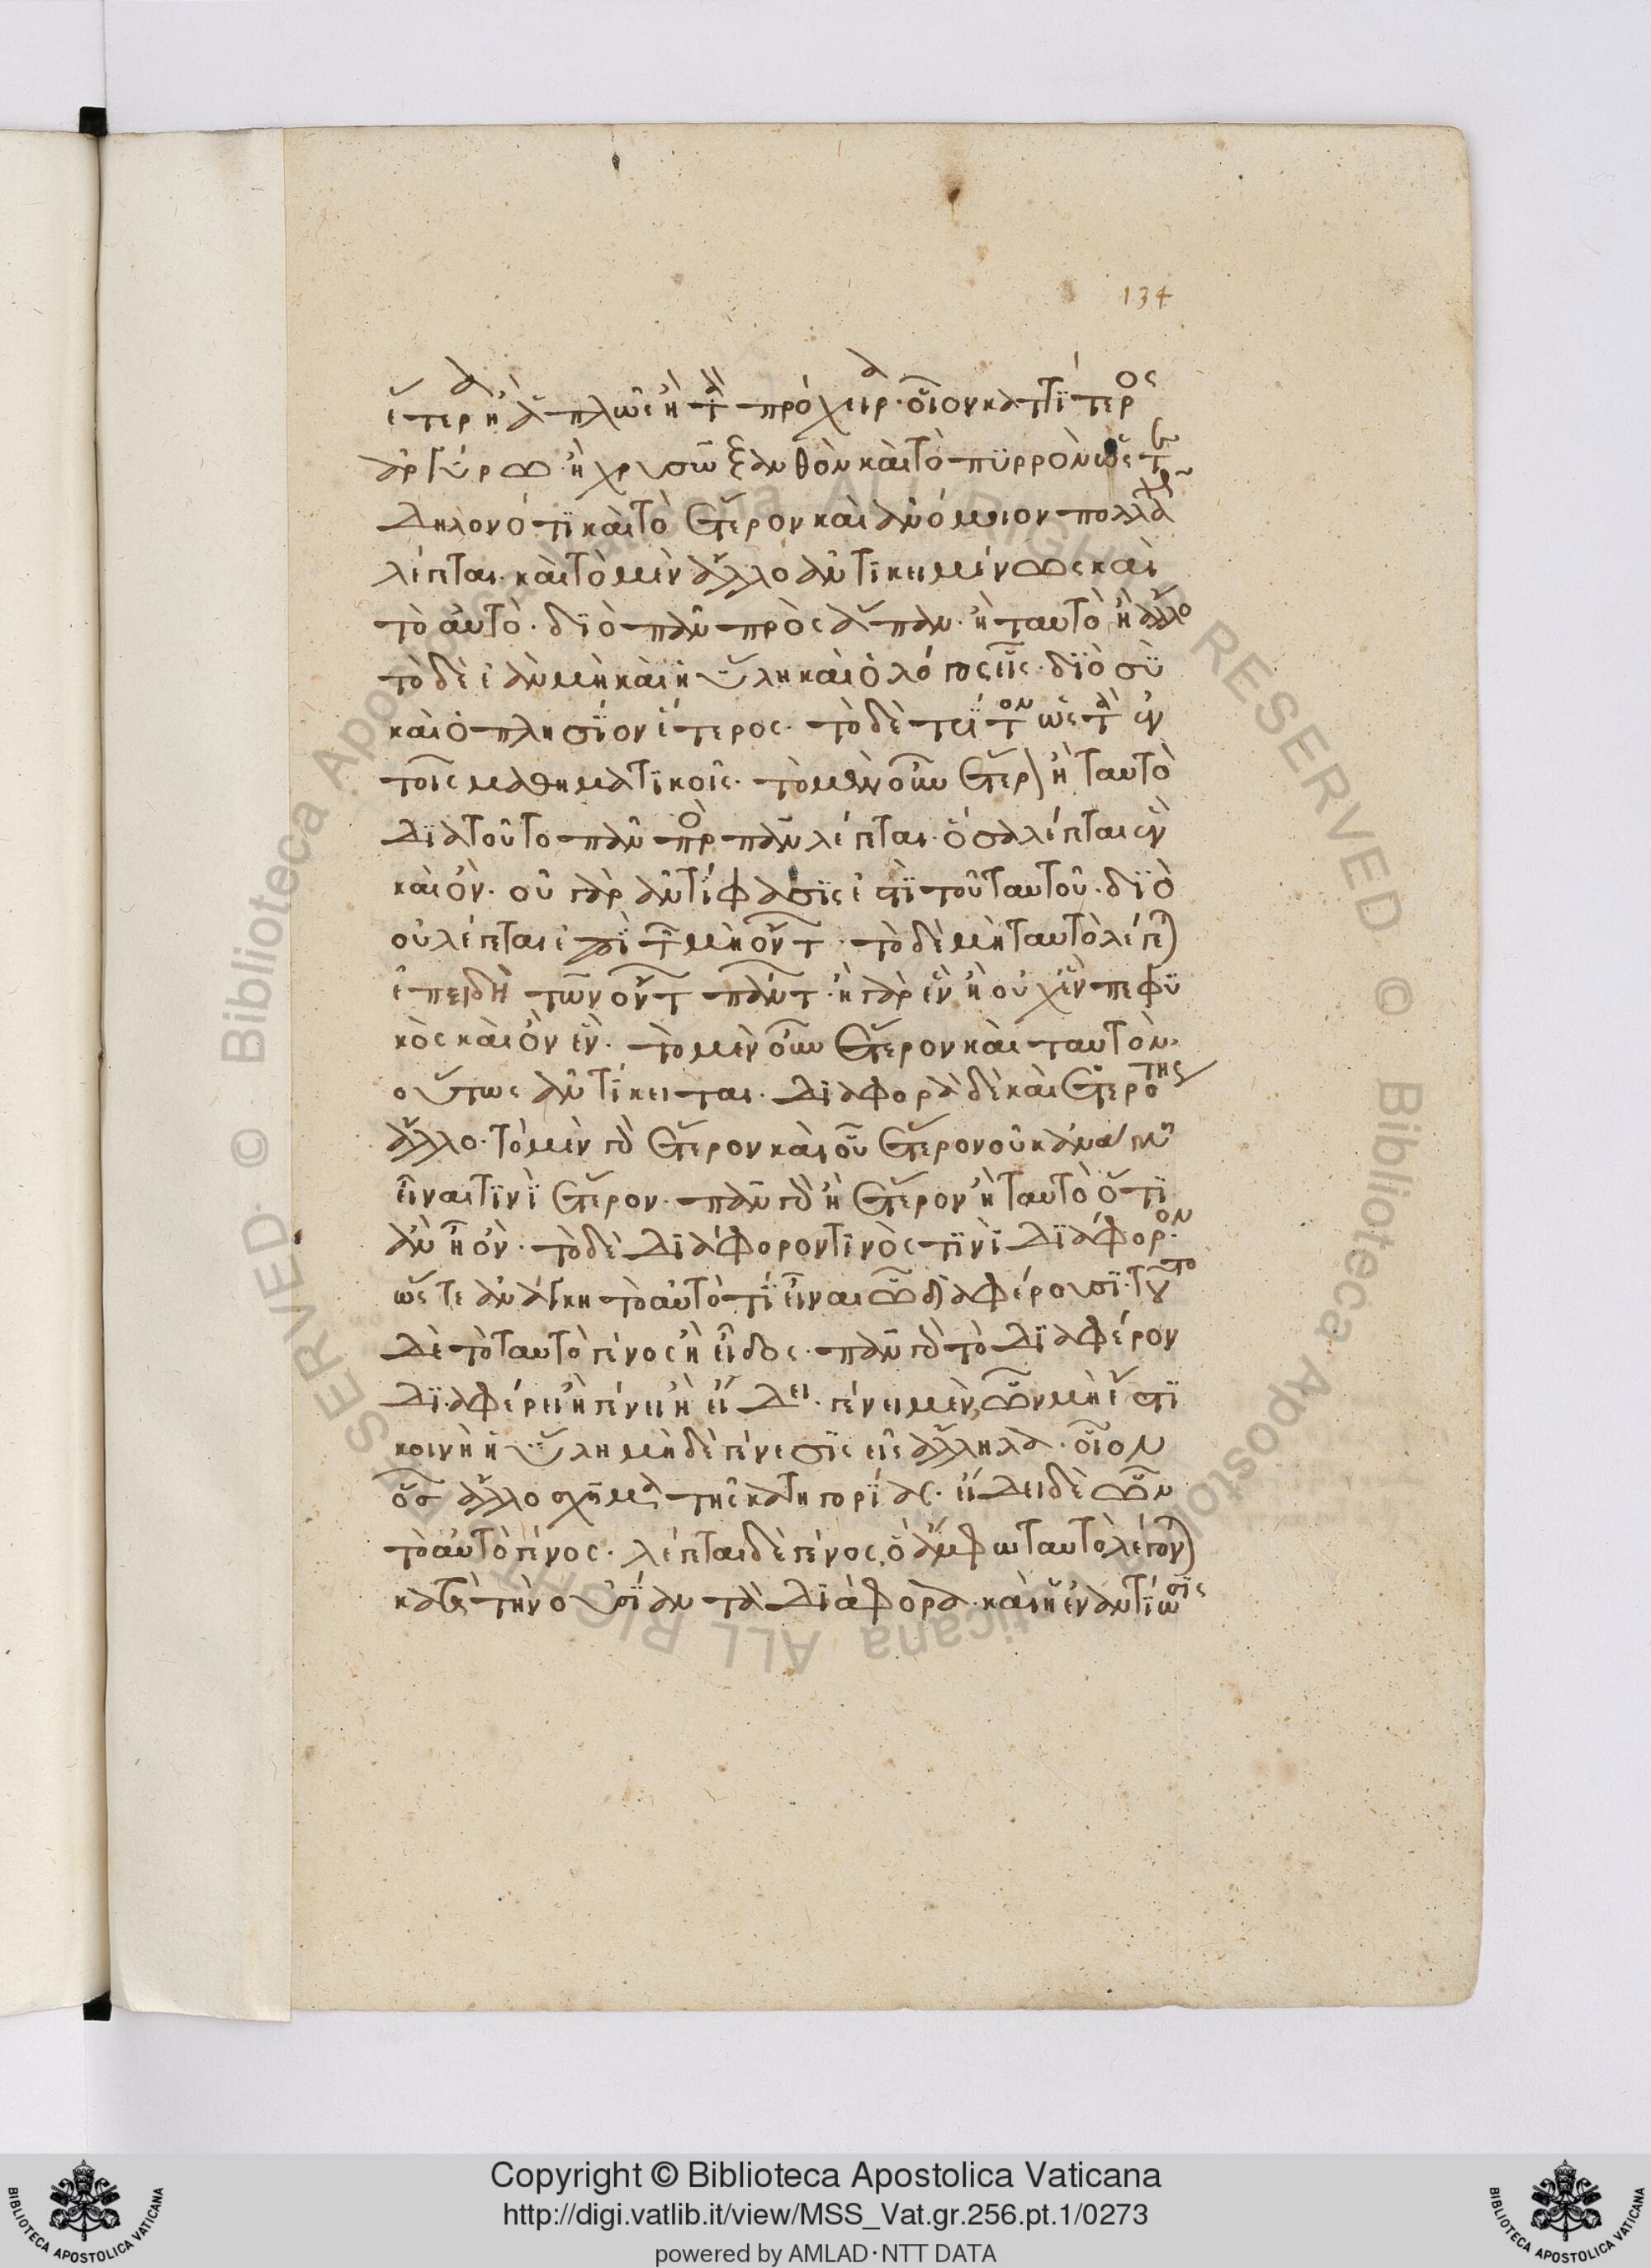 134
ἕτερα ἢ ἁπλῶς ἢ τὰ πρόχειρα. οἷον καττίτερος
ἀργύρω. ἢ χρυσῶ ξανθὸν καὶ τὸ πυρρὸν ὥστε
δηλονότι καὶ τὸ ἕτερον καὶ ἀνόμοιον πολλαχῶς
λέγεται. καὶ τὸ μὲν ἄλλο ἀντικειμένως καὶ
τὸ αὐτὸ. διὸ πᾶν πρὸς ἅπαν. ἢ ταυτὸ ἢ ἄλλο
τὸ δὲ ἐὰν μὴ καὶ ἡ ὕλη καὶ ὁ λόγος εἷς. διὸ σὺ
καὶ ὁ πλησίον ἕτερος. τὸ δὲ τρίτον ὡς τὰ ἐν
τοῖς μαθηματικοῖς. τὸ μὲν οὖν ἕτερον ἢ ταυτὸ
διατοῦτο πᾶν πρὸς πᾶν λέγεται. ὅσα λέγεται ἓν
καὶ ὄν. οὐ γὰρ ἀντίφασίς ἐστι τοῦ ταυτοῦ. διὸ
οὐ λέγεται ἐπὶ τῶν μὴ ὄντων. τὸ δὲ μὴ ταυτὸ λέγεται
ἐπειδὴ τῶν ὄντων πάντων. ἢ γὰρ ἓν ἢ οὐχ ἓν πεφυ
κὸς καὶ ὂν ἓν. τὸ μὲν οὖν ἕτερον καὶ ταυτὸν.
οὕτως ἀντίκειται. διαφορὰ δὲ καὶ ἑτερότης
ἄλλο. τὸ μὲν γὰρ ἕτερον καὶ οὗ ἕτερον οὐκ ἀνάγκη
εἶναι τινὶ ἕτερον. πᾶν γὰρ ἢ ἕτερον ἢ ταυτὸ ὅτι
ἂν ἦ ὂν. τὸ δὲ διάφορον τινὸς τινὶ διάφορον.
ὥστε ἀνάγκη τὸ αὐτὸ τί εἶναι ὧ διαφέρουσι. τοῦτο
δὲ τὸ ταυτὸ γένος ἢ εἶδος. πᾶν γὰρ τὸ διαφέρον
διαφέρει ἢ γένει ἢ εἴδει. γένει μὲν, ὧν μὴ ἔστι
κοινὴ ἡ ὕλη μὴδὲ γένεσις εἰς ἄλληλα. οἷον
ὅσων ἄλλο σχῆμα τῆς κατηγορίας. εἴδει δὲ ὧν
τὸ αὐτὸ γένος. λέγεται δὲ γένος, ὃ ἄμφω ταυτὸ λέγονται
κατὰ τὴν οὐσίαν τὰ διάφορα. καὶ ἡ ἐναντίωσις
Copyright © Biblioteca Apostolica Vaticana
http://digi.vatlib.it/view/MSS_Vat.gr.256.pt.1/0273
powered by AMLAD·NTT DATA